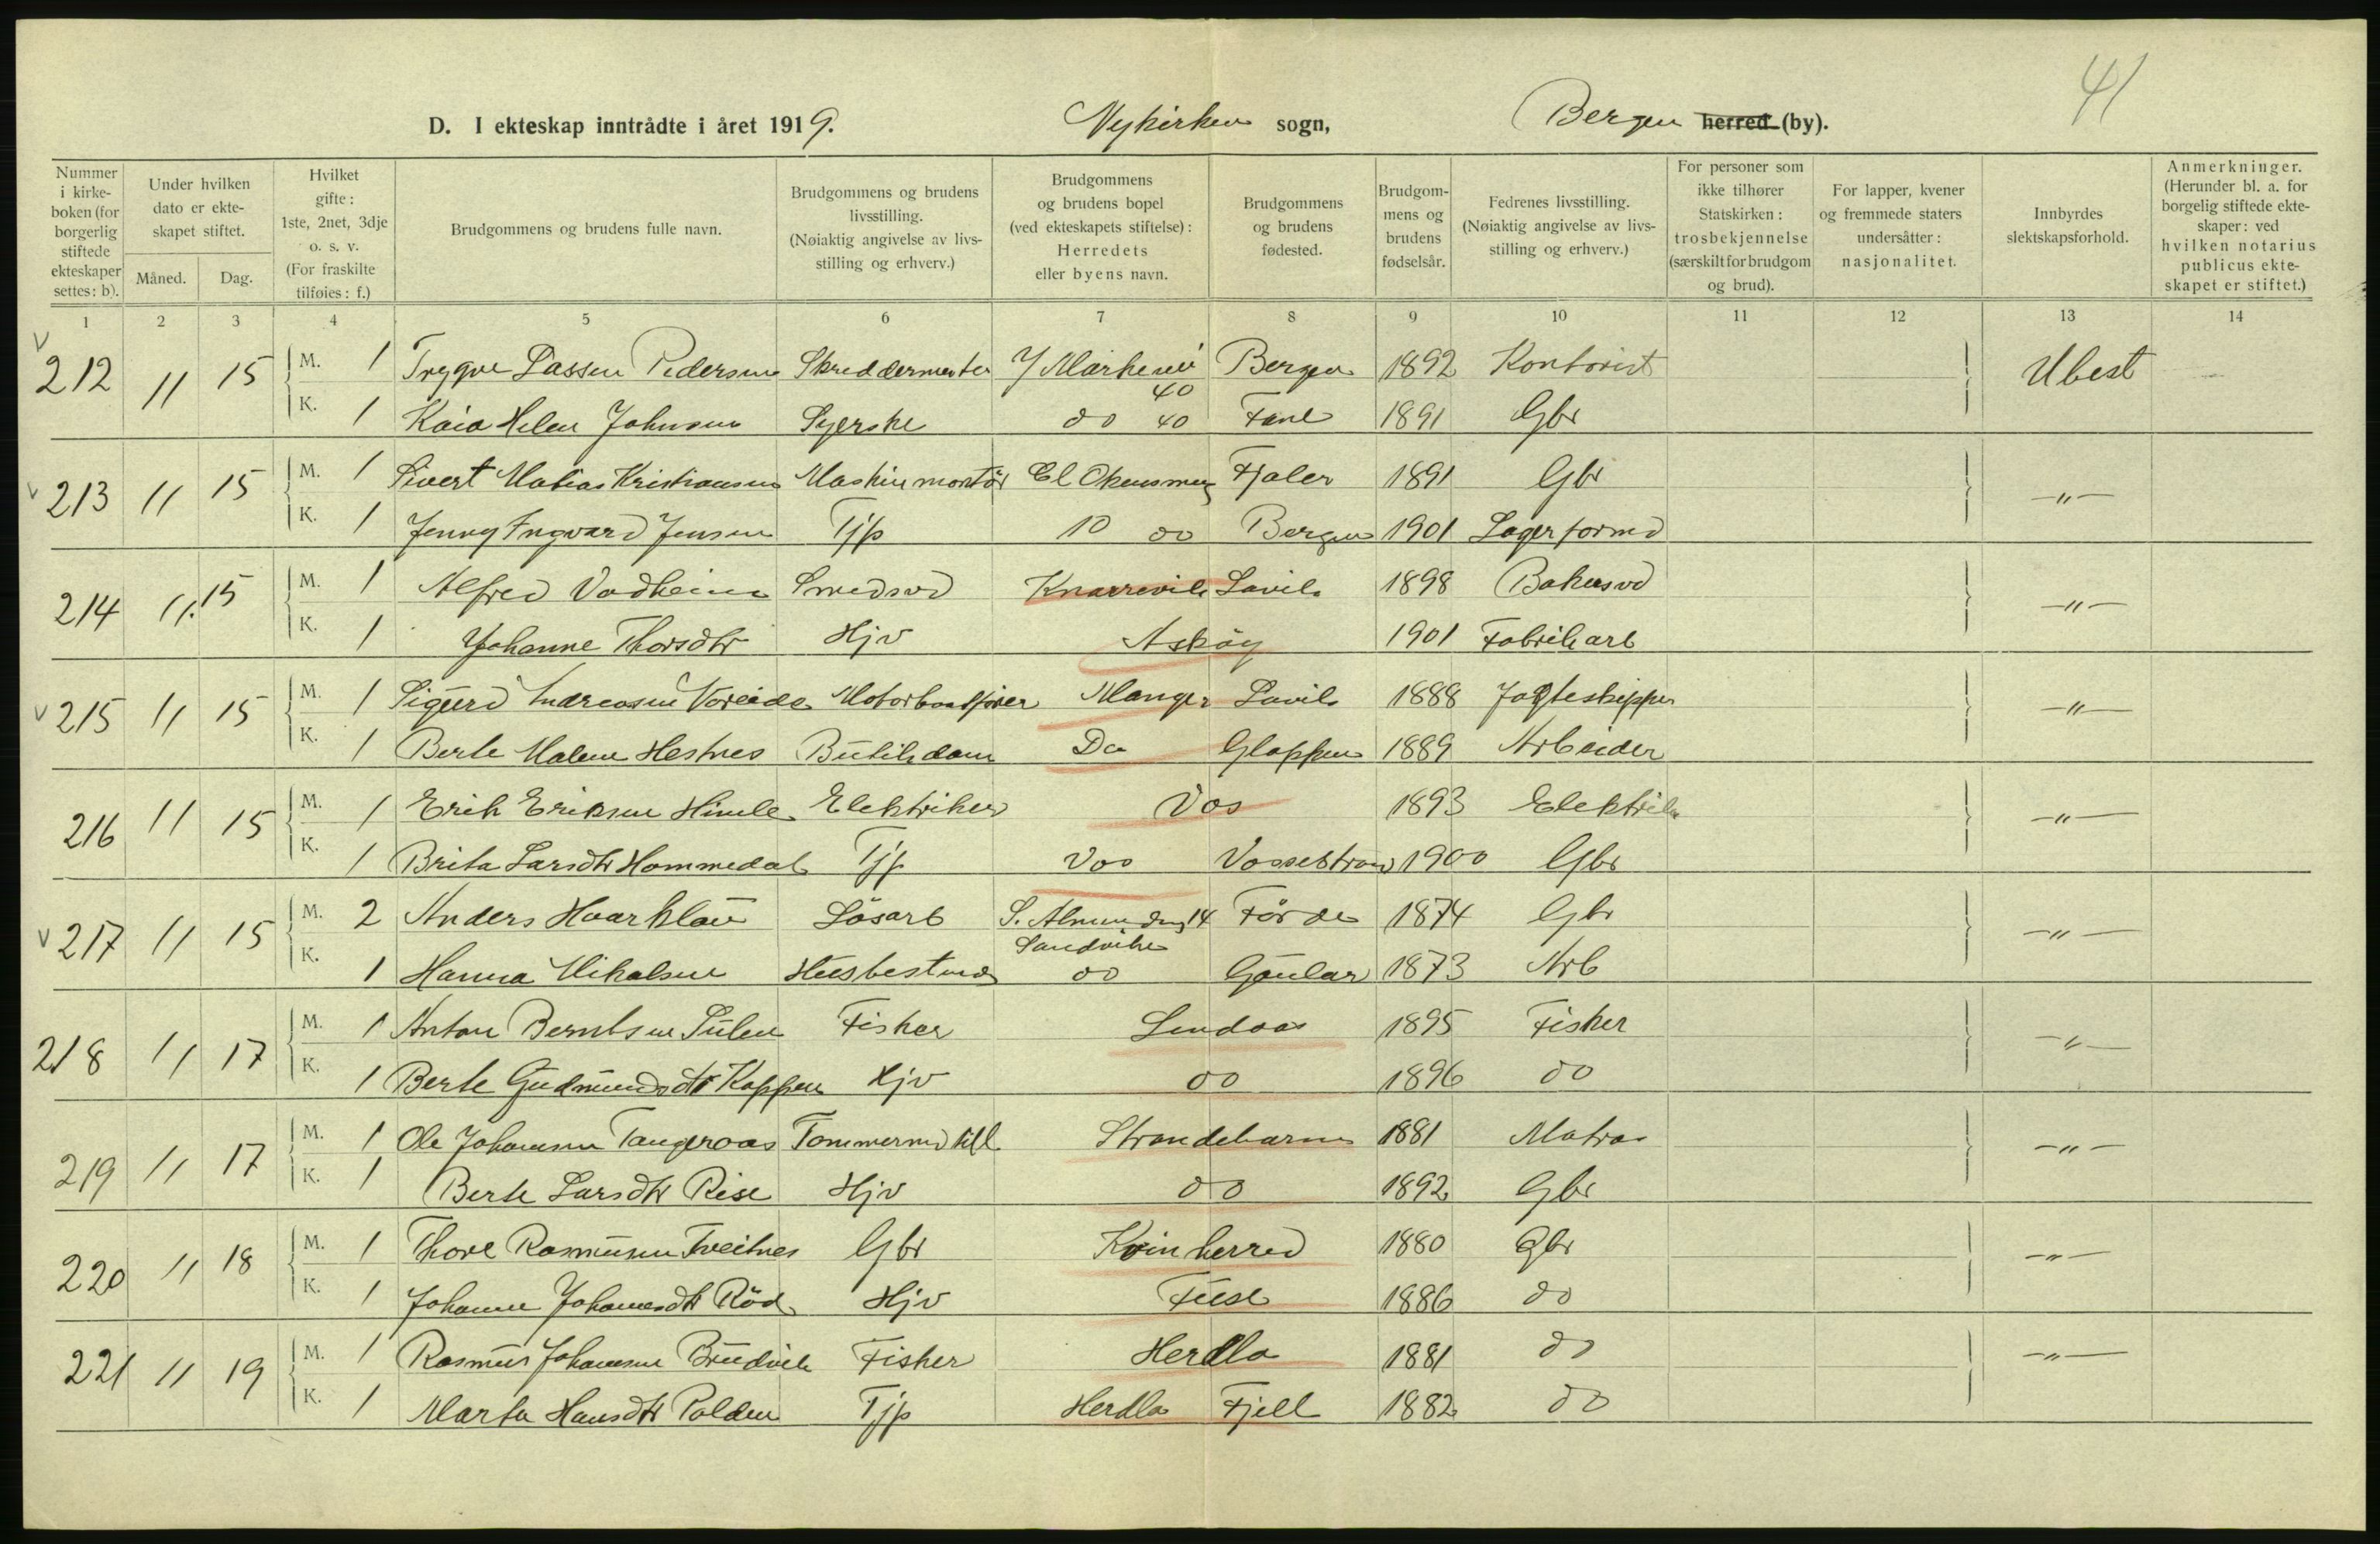 41
D. I ekteskap inntrådte i året 1919. Nykirken sogn, Bergen herred (by).
Nummer i kirkeboken (for borgerlig stiftede ekteskaper settes: b). | Under hvilken dato er ekteskapet stiftet. Måned. Dag. | Hvilket gifte: 1ste, 2net, 3dje o. s. v. (For fraskilte tilføies: f.) | Brudgommens og brudens fulle navn. | Brudgommens og brudens livsstilling. (Nøiaktig angivelse av livsstilling og erhverv.) | Brudgommens og brudens bopel (ved ekteskapets stiftelse): Herredets eller byens navn. | Brudgommens og brudens fødested. | Brudgommens og brudens fødselsår. | Fedrenes livsstilling. (Nøiaktig angivelse av livsstilling og erhverv.) | For personer som ikke tilhører Statskirken: trosbekjennelse (særskilt for brudgom og brud). | For lapper, kvener og fremmede staters undersåtter: nasjonalitet. | Innbyrdes slektskapsforhold. | Anmerkninger. (Herunder bl. a. for borgelig stiftede ekteskaper: ved hvilken notarius publicus ekteskapet er stiftet.)
1 2 3 4 5 6 7 8 9 10 11 12 13 14
v 212 11 15 M. 1 Trygve Lassen Pedersen Skreddermester Y Markevei 40 Bergen 1892 Kontorist Ubest
K. 1 Kaia Helene Johnsen Syerske do 40 Fane 1891 Gbr
v 213 11 15 M. 1 Sivert Matias Kristiansen Maskinmontör Cl Fjaler 1891 Gbr —"—
K. 1 Jenny Ingvard Jensen Tjp 10 do Bergen 1901 Lagerformd
214 11. 15 M. 1 Alfred Vadheim Smedsvd Knarrevik Lavik 1898 Bakersvd —"—
K. 1 Johanne Thorsdtr Hjv Asköy 1901 Fabrikarb
v 215 11 15 M. 1 Sigurd Andreasen Voreide Motorbaadfører Manger Lavik 1888 Jagteskipper —"—
K. 1 Berte Malene Hestnes Butikdame Do Gloppen 1889 Arbeider
216 11 15 M. 1 Erik Eriksen Himle Elektriker Vos 1893 Elektrik —"—
K. 1 Brita Larsdtr Hommedal Tjp Vos Vossestrand 1900 Gbr
v 217 11 15 M. 2 Anders Haarklau Lösarb S. Almending 14 Sandviken Förde 1874 Gbr —"—
K. 1 Hanna Mikalsen Husbestind do Gaular 1873 Arb
218 11 17 M. 1 Anton Berntsen Sulen Fisker Lindaas 1895 Fisker —"—
K. 1 Berte Gudmundsdtr Koppen Hjv do 1896 do
219 11 17 M. 1 Ole Johannsen Tangeraas Tommermd Strandebarm 1881 Matros —"—
K. 1 Berte Larsdtr Rise Hjv do 1892 Gbr
220 11 18 M. 1 Thore Rasmussen Tveitnes Gbr Kvinherred 1880 Gbr —"—
K. 1 Johanne Johannesdtr Röd Hjv Fuse 1886 do
221 11 19 M. 1 Rasmus Johannesen Brudvik Fisker Herdla 1881 do —"—
K. 1 Marta Hansdtr Polden Tjp Herdla Fjell 1882 do